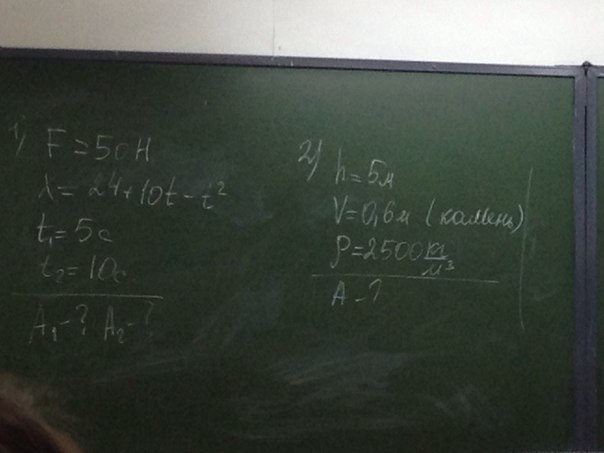 1) F = 50H
x = 24 + 10t - t²
t₁ = 5c
t₂ = 10c
A₁ - ? A₂ - ?
2) h = 5м
V = 0,6м (камень)
ρ = 2500 кг/м³
A - ?